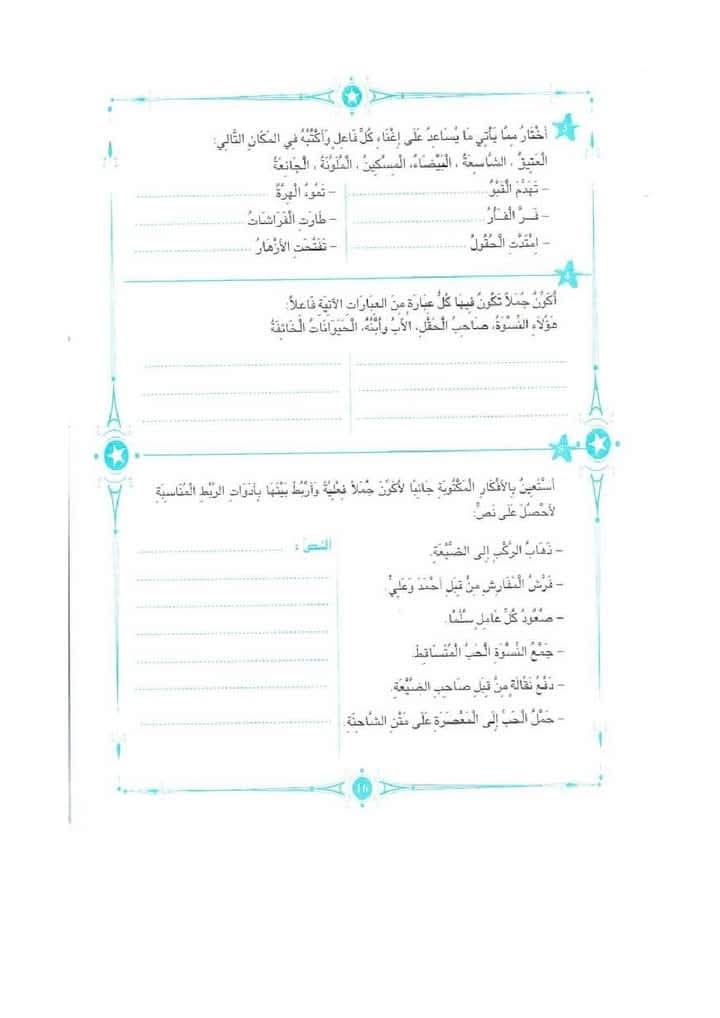 3
أَخْتَارُ مِمَّا يَأْتِي مَا يُسَاعِدُ عَلَى إِغْنَاءِ كُلِّ فَاعِلٍ وَأَكْتُبُهُ فِي المَكَانِ التَّالِي:
الْعَتِيقُ ، الشَّاسِعَةُ ، الْبَيْضَاءُ، الْمِسْكِينُ ، الْمُلَوَّنَةُ ، الْجَائِعَةُ
– تَهَدَّمَ الْقَبْوُ
– تَمُوءُ الْهِرَّةُ
– فَـــرَّ الْفَـأْرُ
– طَارَتِ الْفَرَاشَاتُ
– اِمْتَدَّتِ الْحُقُولُ
– تَفَتَّحَتِ الأَزْهَارُ
4
أُكَوِّنُ جُمَلاً تَكُونُ فِيهَا كُلُّ عِبَارَةٍ مِنَ العِبَارَاتِ الآتِيَةِ فَاعِلاً:
هَؤُلَاءِ النِّسْوَةُ، صَاحِبُ الْحَقْلِ، الأَبُ وَابْنُهُ، الْحَيَوَانَاتُ الْخَائِفَةُ
أَسْتَعِينُ بِالأَفْكَارِ المَكْتُوبَةِ جَانِبًا لأُكَوِّنَ جُمَلاً فِعْلِيَّةً وَأَرْبُطُ بَيْنَهَا بِأَدَوَاتِ الرَّبْطِ المُنَاسِبَةِ
لأَحْصُلَ عَلَى نَصٍّ:
– ذَهَابُ الرَّكْبِ إِلَى الضَّيْعَةِ.
النص :
– فَرْشُ الْمَفَارِشِ مِنْ قِبَلِ أَحْمَدَ وَعَلِيٍّ.
– صُعُودُ كُلِّ عَامِلٍ سُلَّمًا.
– جَمْعُ النِّسْوَةِ الْحَبَّ الْمُتَسَاقِطَ.
– دَفْعُ نَقَّالَةٍ مِنْ قِبَلِ صَاحِبِ الضَّيْعَةِ.
– حَمْلُ الْحَبِّ إِلَى الْمَعْصَرَةِ عَلَى مَتْنِ الشَّاحِنَةِ.
16